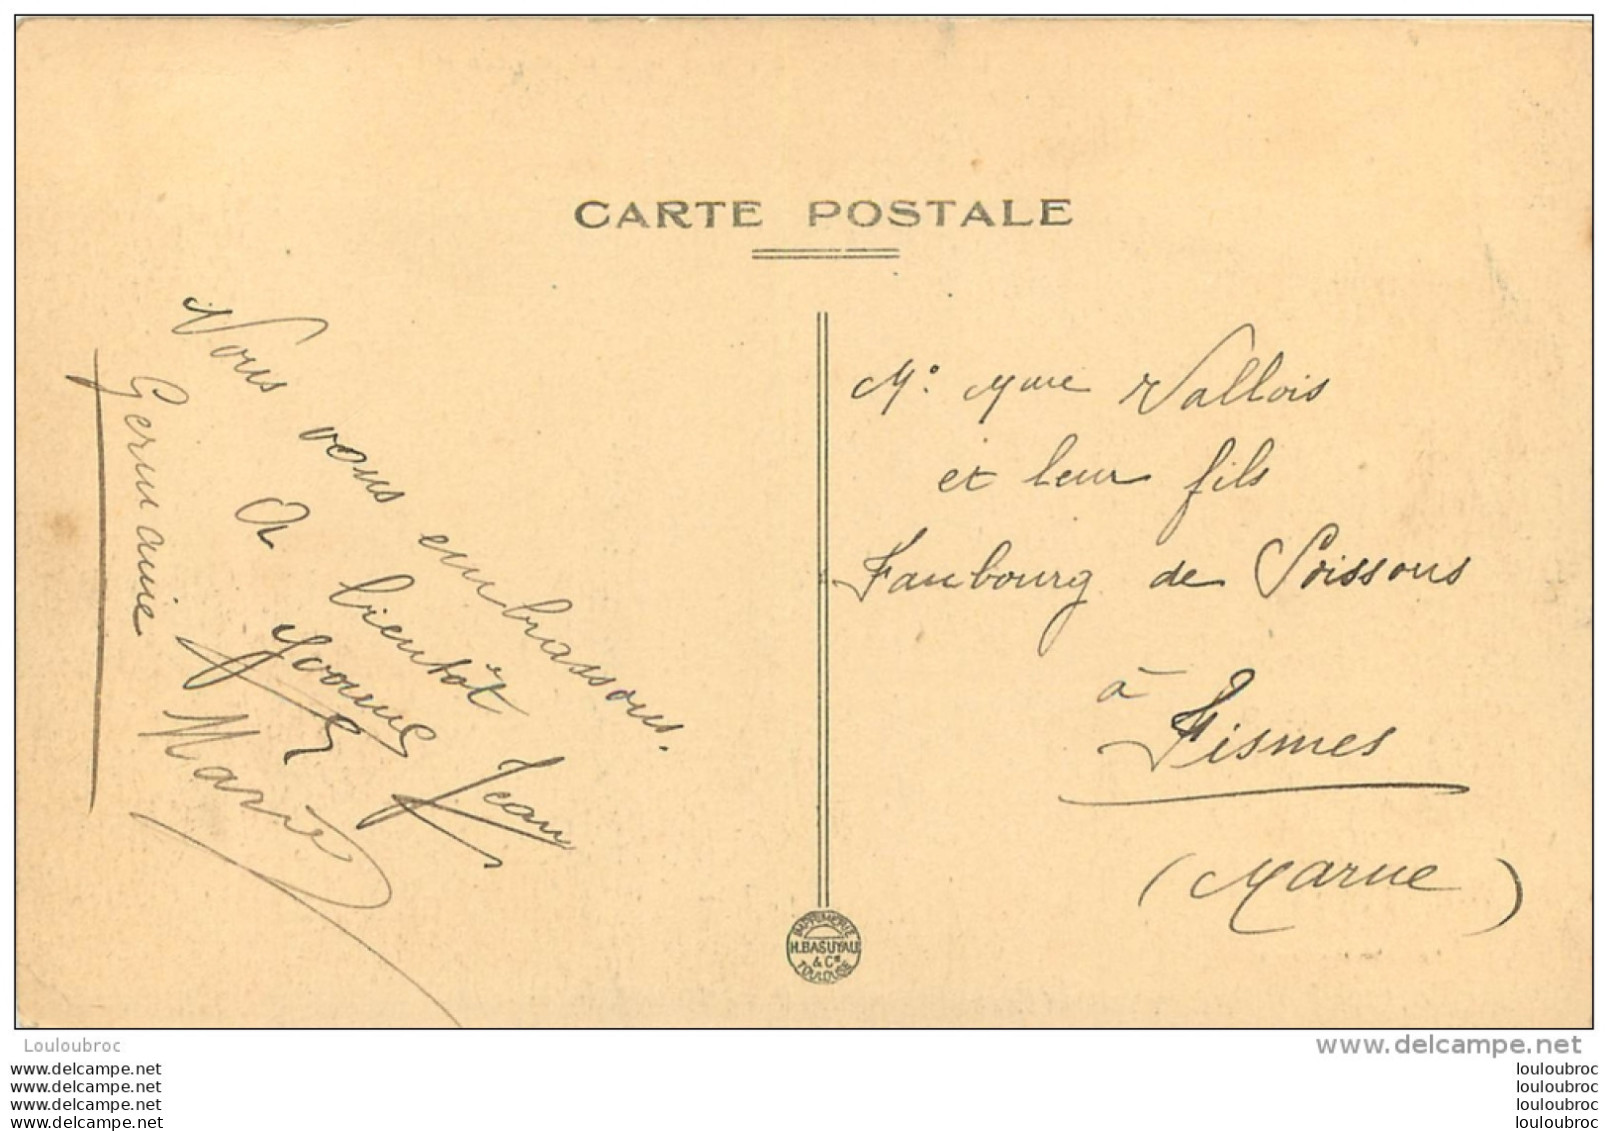 CARTE POSTALE
Nous vous embrassons.
A
bientôt
Germaine
Yvonne
Jean
Marie
Mr. Mme Vallois
et leur fils
Faubourg de Soissons
à
Fismes
(Marne)
IMPRIMERIE
H.BASUYAU
& Cie
TOULOUSE
Louloubroc
www.delcampe.net
www.delcampe.net
www.delcampe.net
www.delcampe.net
www.delcampe.net
louloubroc
louloubroc
louloubroc
louloubroc